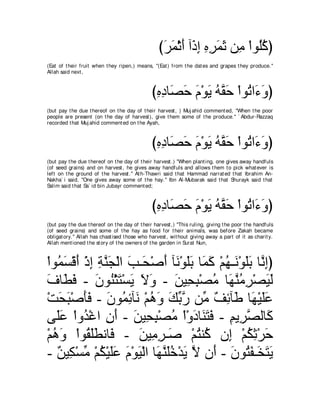 (كُلُواْ مِن ثَمَرِهِ إِذَآ أَثْمَرَ)
(Eat of their fruit when they ripen,) means, "(Eat) from the dates and grapes they produce."
Allah said next,
(وَءَاتُواْ حَقَّهُ يَوْمَ حَصَادِهِ)
(but pay the due thereon on the day of their harvest, ) Mujahid commented, "When the poor
people are present (on the day of harvest), give them some of the produce." `Abdur-Razzaq
recorded that Mujahid commented on the Ayah,
(وَءَاتُواْ حَقَّهُ يَوْمَ حَصَادِهِ)
(but pay the due thereon on the day of their harvest.) "When planting, one gives away handfuls
(of seed grains) and on harvest, he gives away handfuls and allows them to pick whatever is
left on the ground of the harvest." Ath-Thawri said that Hammad narrated that Ibrahim An-
Nakha`i said, "One gives away some of the hay." Ibn Al-Mubarak said that Shurayk said that
Salim said that Sa`id bin Jubayr commented;
(وَءَاتُواْ حَقَّهُ يَوْمَ حَصَادِهِ)
(but pay the due thereon on the day of their harvest) "This ruling, giving the poor the handfuls
(of seed grains) and some of the hay as food for their animals, was before Zakah became
obligatory." Allah has chastised those who harvest, without giving away a part of it as charity.
Allah mentioned the story of the owners of the garden in Surat Nun,
(إِنَّا بَلَوْنَـهُمْ كَمَا بَلَوْنَآ أَصْحَـبَ الْجَنَّةِ إِذْ أَقْسَمُواْ
لَيَصْرِمُنَّهَا مُصْبِحِينَ - وَلاَ يَسْتَثْنُونَ - فَطَافَ
عَلَيْهَا طَآئِفٌ مِّن رَّبِّكَ وَهُمْ نَآئِمُونَ - فَأَصْبَحَتْ
كَالصَّرِيمِ - فَتَنَادَوْاْ مُصْبِحِينَ - أَنِ اغْدُواْ عَلَى
حَرْثِكُمْ إِن كُنتُمْ صَـرِمِينَ - فَانطَلَقُواْ وَهُمْ
يَتَخَـفَتُونَ - أَن لاَّ يَدْخُلَنَّهَا الْيَوْمَ عَلَيْكُمْ مِّسْكِينٌ -